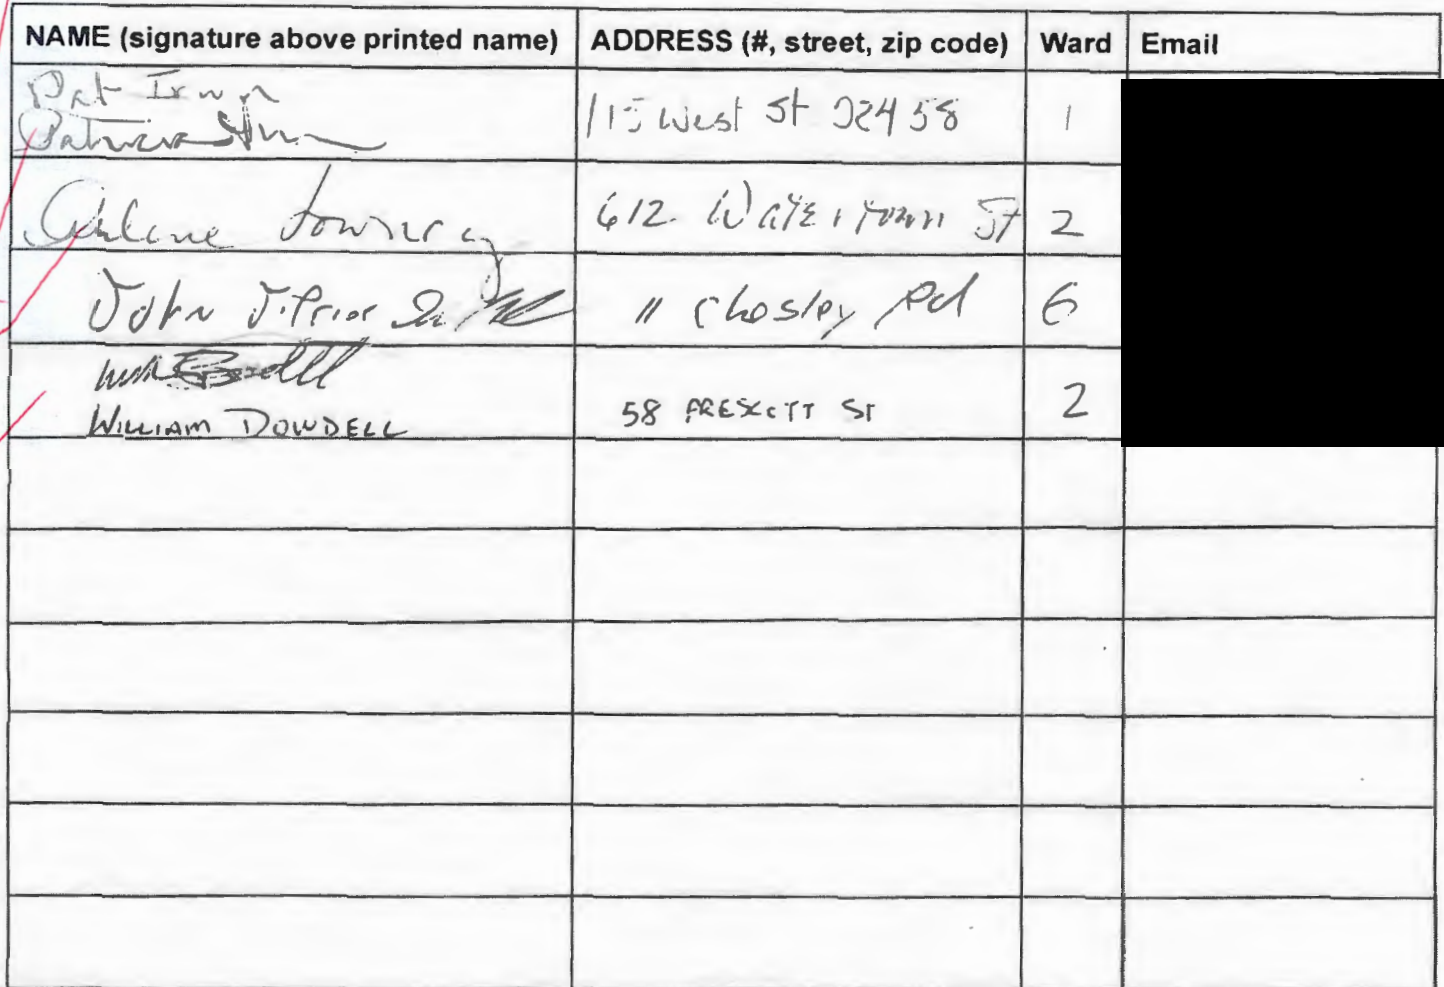 NAME (signature above printed name) ADDRESS (#, street, zip code) Ward Email
Pat Irwin
Patricia 115 West St 02458 1
Arlene 612 Watertown St 2
John J. Prior Jr 11 Chesley Rd 6
WILLIAM DOWDELL 58 PRESCOTT ST 2